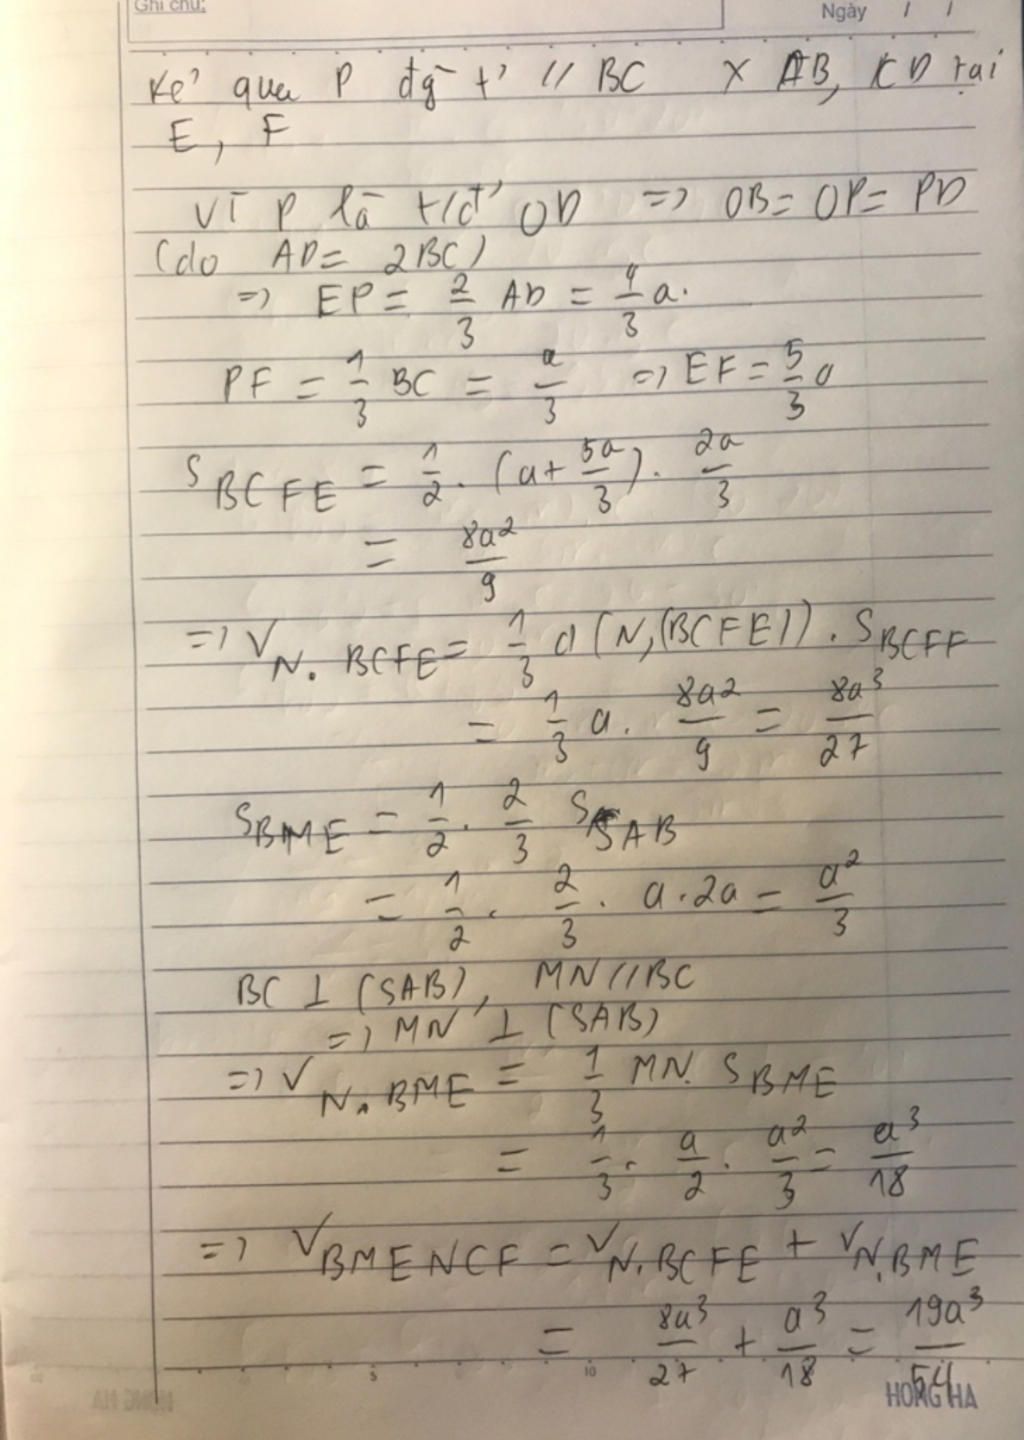 Ghi chú:
Ngày / /
Kẻ qua P đg t' // BC X AB, CD tại
E, F
Vì P là t/đ' OD => OB = OP = PD
(do AD = 2BC)
=> EP = 2/3 AD = 4/3 a.
PF = 1/3 BC = a/3 => EF = 5/3 a
S BCFE = 1/2 . (a + 5a/3) . 2a/3
= 8a²/9
=> V N.BCFE = 1/3 d(N,(BCFE)) . S BCFF
= 1/3 a . 8a²/9 = 8a³/27
S BME = 1/2 . 2/3 S SAB
= 1/2 . 2/3 . a . 2a = a²/3
BC ⊥ (SAB), MN // BC
=> MN ⊥ (SAB)
=> V N.BME = 1/3 MN. S BME
= 1/3 . a/2 . a²/3 = a³/18
=> V BMENCF = V N.BCFE + V N.BME
= 8a³/27 + a³/18 = 19a³/54
5 10
HONG HA